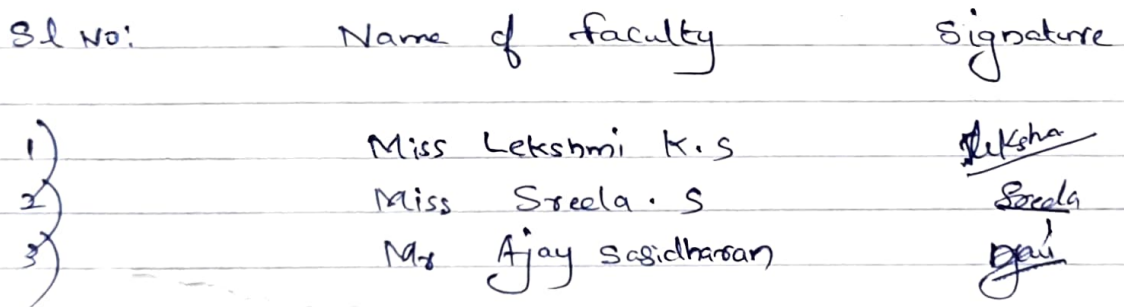 Sl No: Name of faculty Signature
1) Miss Lekshmi K.S Leksha
2) Miss Sreela. S Sreela
3) Mr Ajay Sasidharan